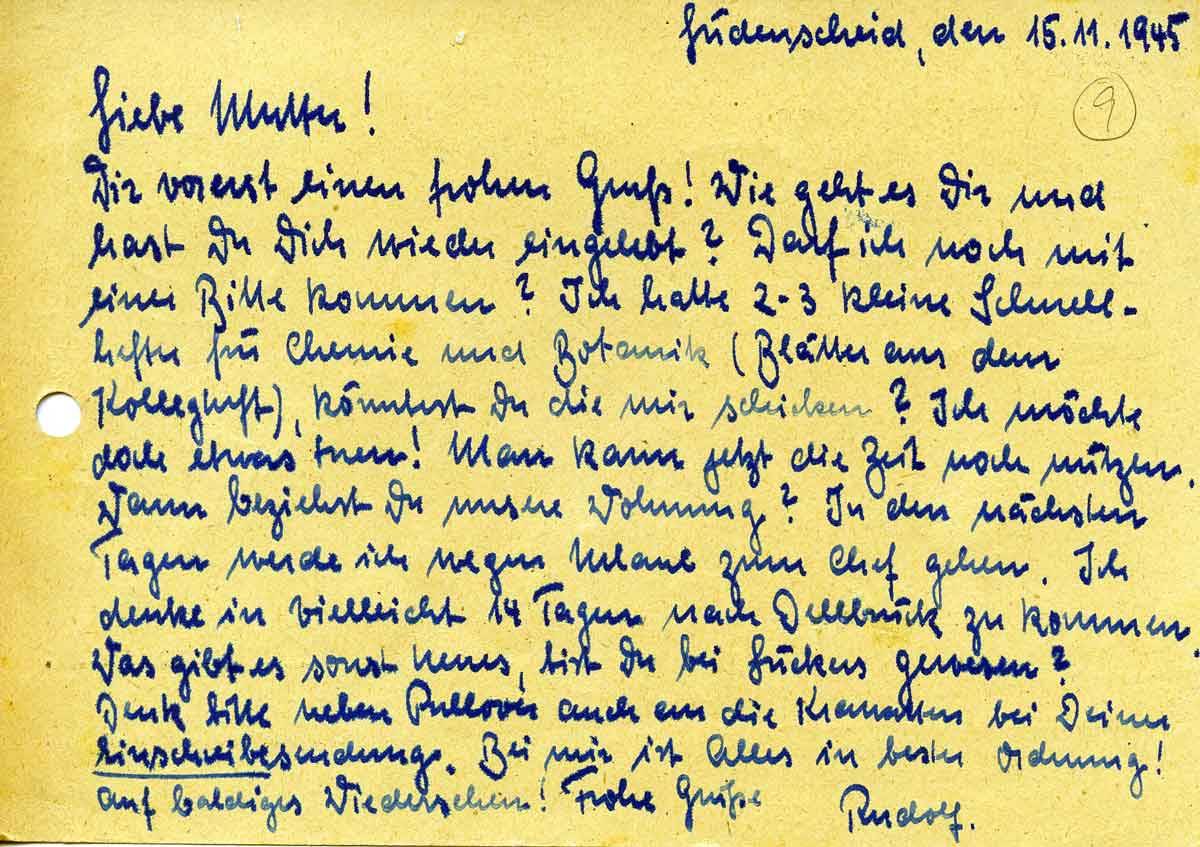 Lüdenscheid, den 15.11.1945
9
Liebe Mutter!
Dir vorerst einen frohen Gruß! Wie geht es Dir und
hast Du Dich wieder eingelebt? Darf ich noch mit
einer Bitte kommen? Ich hatte 2-3 kleine Schnell-
hefter für Chemie und Botanik (Blätter aus dem
Kollegheft), könntest Du die mir schicken? Ich möchte
doch etwas tuen! Man kann jetzt die Zeit noch nützen.
Wann beziehst Du unsere Wohnung? In den nächsten
Tagen werde ich wegen Urlaub zum Chef gehen. Ich
denke in vielleicht 14 Tagen nach Dellbrück zu kommen.
Was gibt es sonst Neues, bist Du bei Lückers gewesen?
Denk bitte neben Pullover auch an die Krawatten bei Deiner
Einschreibesendung. Bei mir ist Alles in bester Ordnung!
Auf baldiges Wiedersehen! Frohe Grüße
Rudolf.